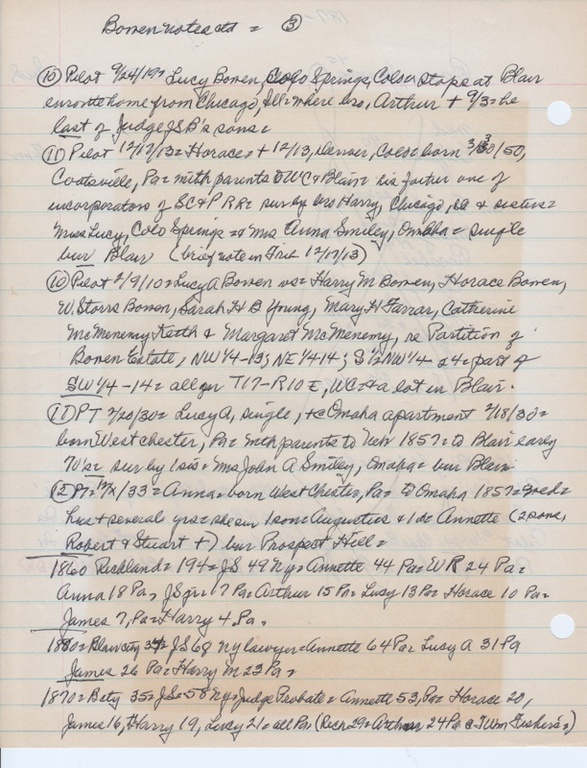 Bowen notes ctd = ③
⑩ Pilot 9/24/19= Lucy Bowen, Colo Springs, Colo= stops at Blair
enroute home from Chicago, Ill= where bro, Arthur + 9/3= he
last of Judge JSB's sons=
⑪ Pilot 12/17/13= Horace= + 12/13, Denver, Colo= born 3/30/50,
Coatsville, Pa= with parents to WC & Blair= his father one of
incorporators of SC&P RR= sur by bro Harry, Chicago, & sisters=
Miss Lucy, Colo Springs = Mrs Anna Smiley, Omaha = single
bur Blair (brief note in Trib 12/17/13)
⑩ Pilot 2/9/10= Lucy A Bowen vs= Harry M Bowen, Horace Bowen,
W. Storrs Bowen, Sarah H B Young, Mary H Farrar, Catherine
McMenemy Keith & Margaret McMenemy, re Partition of
Bowen Estate, NW 1/4-13; NE 1/4 14; S 1/2 NW 1/4 & part of
SW 1/4 -14= all in T17-R10 E, WC= & a lot in Blair.
⑪ PT 2/20/30= Lucy A, single, + Omaha apartment 2/18/30=
born West chester, Pa= with parents to Neb 1857= to Blair early
70's= sur by 1 sis= Mrs John A Smiley, Omaha= bur Blair
⑫ PT= /33= Anna= born West Chester, Pa= to Omaha 1857=
hus + several yrs= she sur 1 son= Augustus & 1 d= Annette (2 sons,
Robert & Stuart +) bur Prospect Hill=
1860 Richland= 194= JS 49 Ny= Annette 44 Pa= WR 24 Pa=
Anna 18 Pa, JS jr 17 Pa= Arthur 15 Pa= Lucy 13 Pa= Horace 10 Pa=
James 7, Pa= Harry 4 Pa.
1880= Blair city JS 68 Ny lawyer= Annette 64 Pa= Lucy A 31 Pa
James 26 Pa= Harry M 23 Pa=
1870= Bcty 35= JS= 58 Ny= Judge Probate= Annette 53, Pa= Horace 20,
James 16, Harry 19, Lucy 21= all Pa (Rich 29= Arthur 24 Pa @ Fisher's=)